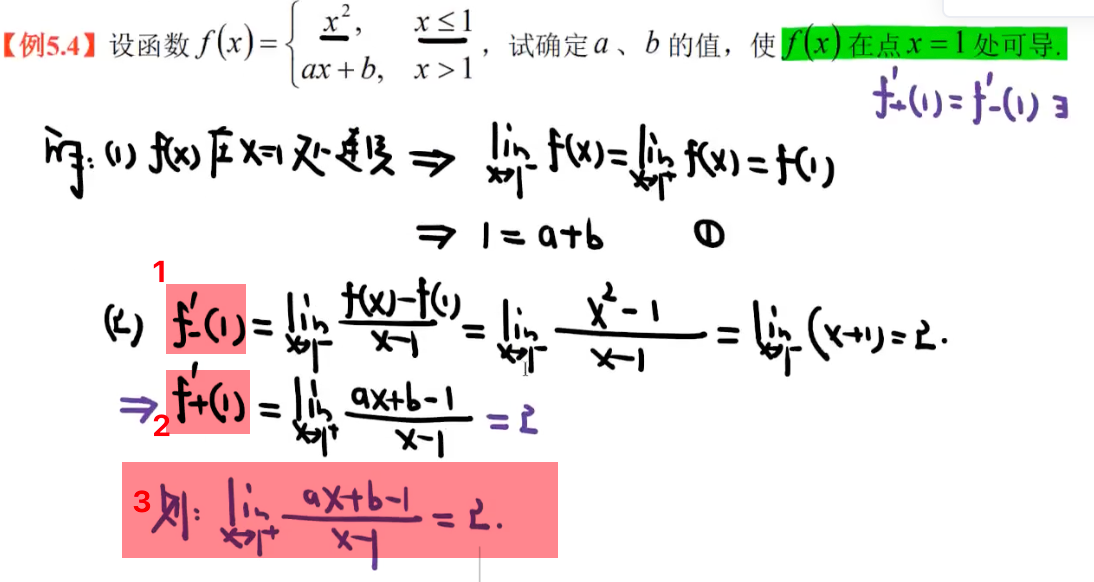 【例5.4】设函数 f(x)={ x², x≤1 ，试确定 a 、 b 的值，使 f(x) 在点 x=1 处可导.
ax+b, x>1
f'₊(1)=f'₋(1) ∃
解: (1) f(x)在 x=1 处连续 ⇒ lim_{x→1⁻} f(x)=lim_{x→1⁺} f(x)=f(1)
⇒ 1=a+b ①
1
(2) f'₋(1)=lim_{x→1⁻} (f(x)-f(1))/(x-1) = lim_{x→1⁻} (x²-1)/(x-1) = lim_{x→1⁻} (x+1)=2.
⇒ f'₊(1)=lim_{x→1⁺} (ax+b-1)/(x-1) =2
2
3 则: lim_{x→1⁺} (ax+b-1)/(x-1) =2.